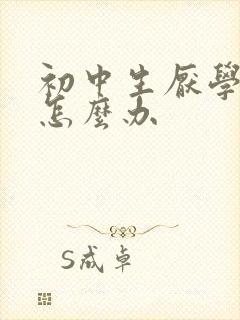 初中生厌學
怎麼办
S成卓